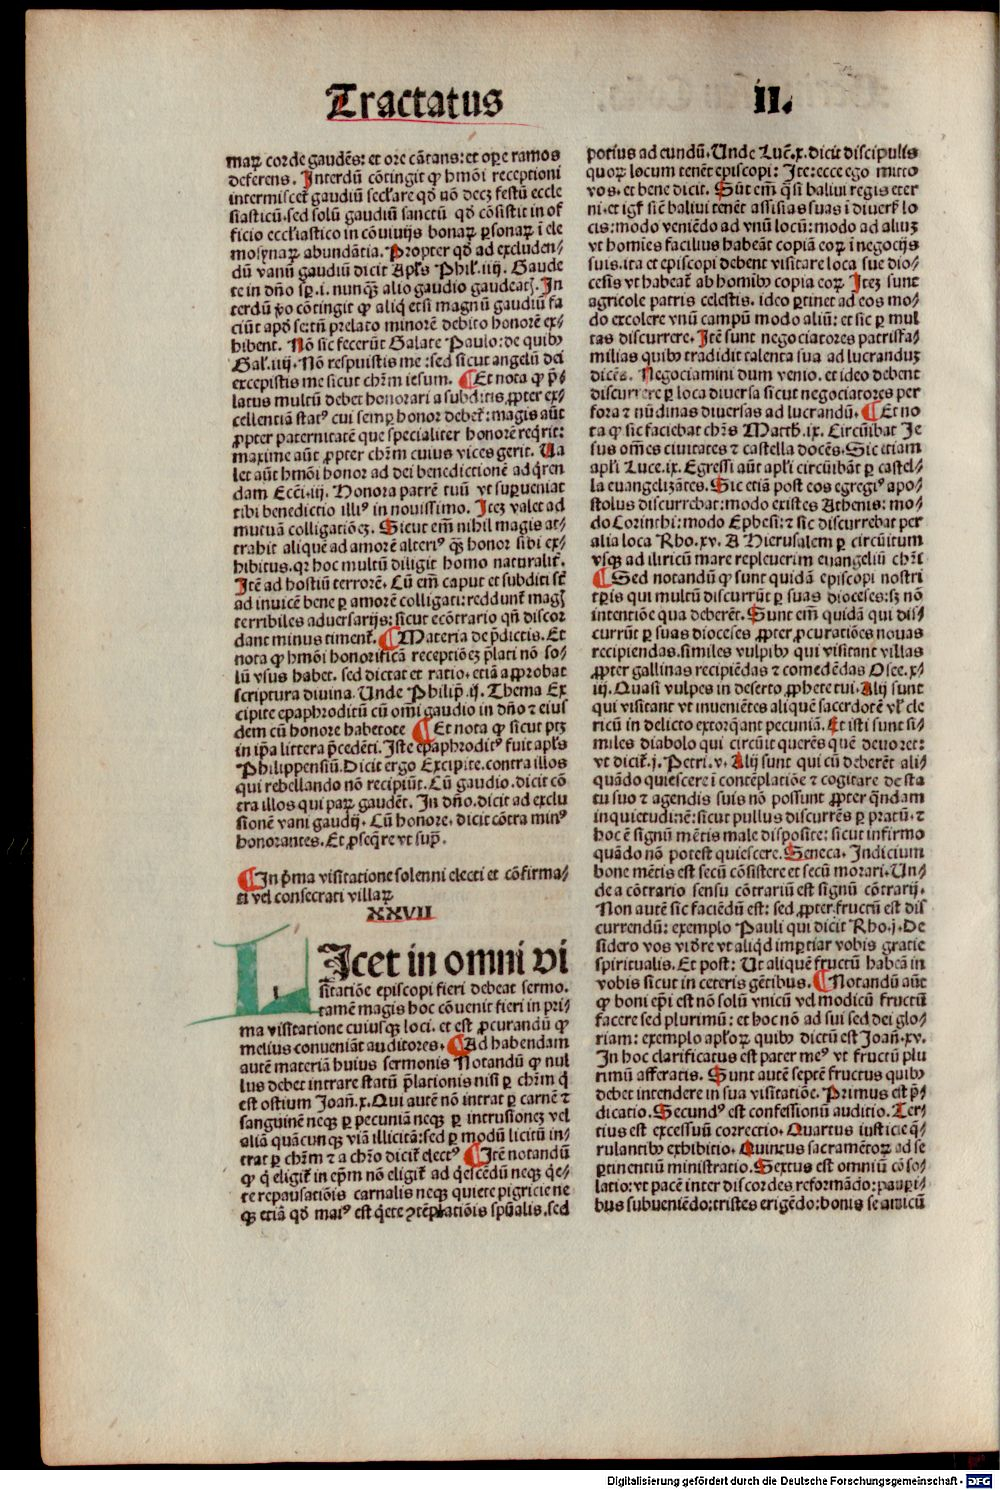 Tractatus II.
maꝝ corde gaudēs: et ore cātans: et oꝑe ramos
deferens. Interdū cōtingit ꝙ hmōi receptioni
intermiscet᷑ gaudiū secl̄are qd̄ nō decꝫ festū eccle
siasticū. sed solū gaudiū sanctū qd̄ cōsistit in of
ficio eccl̄iastico in cōuiuijs bonaꝝ ꝑsonaꝝ ī ele
mosynaꝝ abundātia. Propter qd̄ ad excluden⸗
dū vanū gaudiū dicit Apl̄s Phil̄. iiij. Gaude
te in dn̄o sꝑ. i. nunqꝫ alio gaudio gaudeatꝭ. In
terdū ꝟo cōtingit ꝙ aliq̄ etsi magnū gaudiū fa
ciūt apd̄ se: tn̄ prelato minorē debito honorē ex⸗
hibent. Nō sic fecerūt Galate Paulo: de quibꝰ
Gal̄. iiij. Nō respuistis me: sed sicut angelū dei
excepistis me sicut chr̄m iesum. ¶ Et nota ꝙ p̄⸗
latus multū debet honorari a subditis ꝓpter ex⸗
cellentiā statꝰ cui semꝑ honor debet᷑: magis aūt
ꝓpter paternitatē que specialiter honorē req̄rit:
maxime aūt ꝓpter chr̄m cuius vices gerit. Ua
let aūt hmōi honor ad dei benedictionē adq̄ren
dam Ecci. iij. Honora patrē tuū vt suꝑueniat
tibi benedictio illiꝰ in nouissimo. Itēꝫ valet ad
mutuā colligationēꝫ. Sicut em̄ nihil magis at⸗
trahit aliquē ad amorē alteriꝰ qꝫ honor sibi ex⸗
hibitus. qꝛ hoc multū diligit homo naturalit᷑.
Itē ad hostiū terrorē. Cū em̄ caput et subditi st̄
ad inuicē bene ꝑ amorē colligati: reddunt᷑ magꝭ
terribiles aduersarijs: sicut ecōtrario qn̄ discor
dant minus timent᷑. ¶ Materia de p̄dictis. Et
nota ꝙ hmōi honorificā receptionēꝫ p̄lati nō so⸗
lū vsus habet. sed dictat et ratio. etiā approbat
scriptura diuina. Unde Philip̄. ij. Thema Ex
cipite epaphroditū cū om̄i gaudio in dn̄o ⁊ eius
dem cū honore habetote ¶ Et nota ꝙ sicut ptꝫ
in ip̄a littera p̄cedēti. Iste epaphroditꝰ fuit apl̄s
Philippensiū. Dicit ergo Excipite. contra illos
qui rebellando nō recipiūt. Cū gaudio. dicit cō
tra illos qui paꝝ gaudēt. In dn̄o. dicit ad exclu
sionē vani gaudij. Cū honore. dicit cōtra minꝰ
honorantes. Et ꝓseq̄re vt sup̄.
¶ In p̄ma visitatione solenni electi et cōfirma⸗
ti vel consecrati villaꝝ
XXVII
LIcet in omni vi
sitatiōe episcopi fieri debeat sermo.
tamē magis hoc cōuenit fieri in pri⸗
ma visitatione cuiusqꝫ loci. et est ꝓcurandū ꝙ
melius conueniāt auditores. ¶ Ad habendam
autē materiā huius sermonis Notandū ꝙ nul
lus debet intrare statū p̄lationis nisi ꝑ chr̄m q̄
est ostium Joan̄. x. Qui autē nō intrat ꝑ carnē ⁊
sanguinē neqꝫ ꝑ pecuniā neqꝫ ꝑ intrusionēꝫ vel
aliā quācunqꝫ viā illicitā: sed ꝑ modū licitū in⸗
trat ꝑ chr̄m ⁊ a chr̄o dicit᷑ electꝰ ¶ Itē notandū
ꝙ q̄ eligit᷑ in ep̄m nō eligit᷑ ad q̄escēdū neqꝫ q̄e⸗
te repausatiōis carnalis neqꝫ quiete pigricie ne
qꝫ etiā qd̄ maiꝰ est q̄ete ꝯtēplatiōis spūalis. sed
potius ad eundū. Unde Luc̄. x. dicit discipulis
quoꝝ locum tenēt episcopi: Ite: ecce ego mitto
vos. et bene dicit. Sūt em̄ q̄si baliui regis eter
ni. et igit᷑ sic̄ baliui tenēt assisias suas ī diuers̄ lo
cis: modo veniēdo ad vnū locū: modo ad aliuꝫ
vt homīes facilius habeāt copiā eoꝝ ī negocijs
suis. ita et episcopi debent visitare loca sue dio⸗
cesis vt habeat᷑ ab homībꝰ copia eoꝝ Itēꝫ sunt
agricole patris celestis. ideo ꝑtinet ad eos mo⸗
do excolere vnū campū modo aliū: et sic ꝑ mul
tas discurrere. Itē sunt negociatores patrisfa⸗
milias quibꝰ tradidit talenta sua ad lucranduꝫ
dicēs. Negociamini dum venio. et ideo debent
discurrere ꝑ loca diuersa sicut negociatores per
fora ⁊ nūdinas diuersas ad lucrandū. ¶ Et no
ta ꝙ sic faciebat chr̄s Matth̄. ix. Circuībat Je
sus om̄es ciuitates ⁊ castella docēs. Sic etiam
apl̄i Luce. ix. Egressi aūt apl̄i circuībāt ꝑ castel⸗
la euangelizātes. Sic etiā post eos egregiꝰ apo⸗
stolus discurrebat: modo existēs Athenis: mo⸗
do Corinthi: modo Ephesi: ⁊ sic discurrebat per
alia loca Rho. xv. A Hierusalem ꝑ circūitum
vsqꝫ ad iliricū mare repleuerim euangeliū chr̄i
¶ Sed notandū ꝙ sunt quidā episcopi nostri
tꝑis qui multū discurrūt ꝑ suas dioceses: sꝫ nō
intentiōe qua deberēt. Sunt em̄ quidā qui dis⸗
currūt ꝑ suas dioceses ꝓpter ꝓcuratiōes nouas
recipiendas. similes vulpibꝰ qui visitant villas
ꝓpter gallinas recipiēdas ⁊ comedēdas Osee. x⸗
iij. Quasi vulpes in deserto ꝓphete tui. Alij sunt
qui visitant vt inuenientes aliquē sacerdotē vl̄ cle
ricū in delicto extorq̄ant pecuniā. Et isti sunt si⸗
miles diabolo qui circuit querēs quē deuoret:
vt dicit᷑. j. Petri. v. Alij sunt qui cū deberēt ali⸗
quādo quiescere ī contēplatiōe ⁊ cogitare de sta
tu suo ⁊ agendis suis nō possunt ꝓpter q̄ndam
inquietudinē: sicut pullus discurrēs ꝑ pratū. ⁊
hoc ē signū mētis male disposite: sicut infirmo
quādo nō potest quiescere. Seneca. Indicium
bone mētis est secū cōsistere et secū morari. Un⸗
de a cōtrario sensu cōtrariū est signū cōtrarij.
Non autē sic faciēdū est: sed ꝓpter fructū est dis
currendū: exemplo Pauli qui dicit Rho. j. De
sidero vos vidēre vt aliqd̄ imꝑtiar vobis gratie
spiritualis. Et post: Ut aliquē fructū habeā in
vobis sicut in ceteris gētibus. ¶ Notandū aūt
ꝙ boni ep̄i est nō solū vnicū vel modicū fructū
facere sed plurimū: et hoc nō ad sui sed dei glo⸗
riam: exemplo apl̄oꝝ quibꝰ dictū est Joan̄. xv.
In hoc clarificatus est pater meꝰ vt fructū plu
rimū afferatis. Sunt autē septē fructus quibꝰ
debet intendere in sua visitatiōe. Primus est p̄⸗
dicatio. Secundꝰ est confessionū auditio. Ter⸗
tius est excessuū correctio. Quartus iusticie q̄⸗
rulantibꝰ exhibitio. Quintus sacramētoꝝ ad se
ꝑtinentiū ministratio. Sextus est omniū cōso⸗
latio: vt pacē inter discordes reformādo: pauꝑi⸗
bus subueniēdo: tristes erigēdo: bonis se amicū
Digitalisierung gefördert durch die Deutsche Forschungsgemeinschaft - DFG